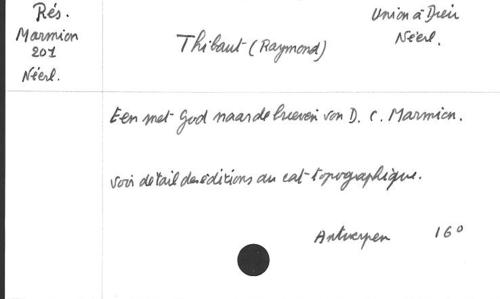 Rés.
Marmion
201
Néerl.
Thibaut (Raymond)
Union à Dieu
Néerl.
Een met God naar de brieven von D. C. Marmion.
Voir détail des éditions au cat. topographique.
Antwerpen 16°